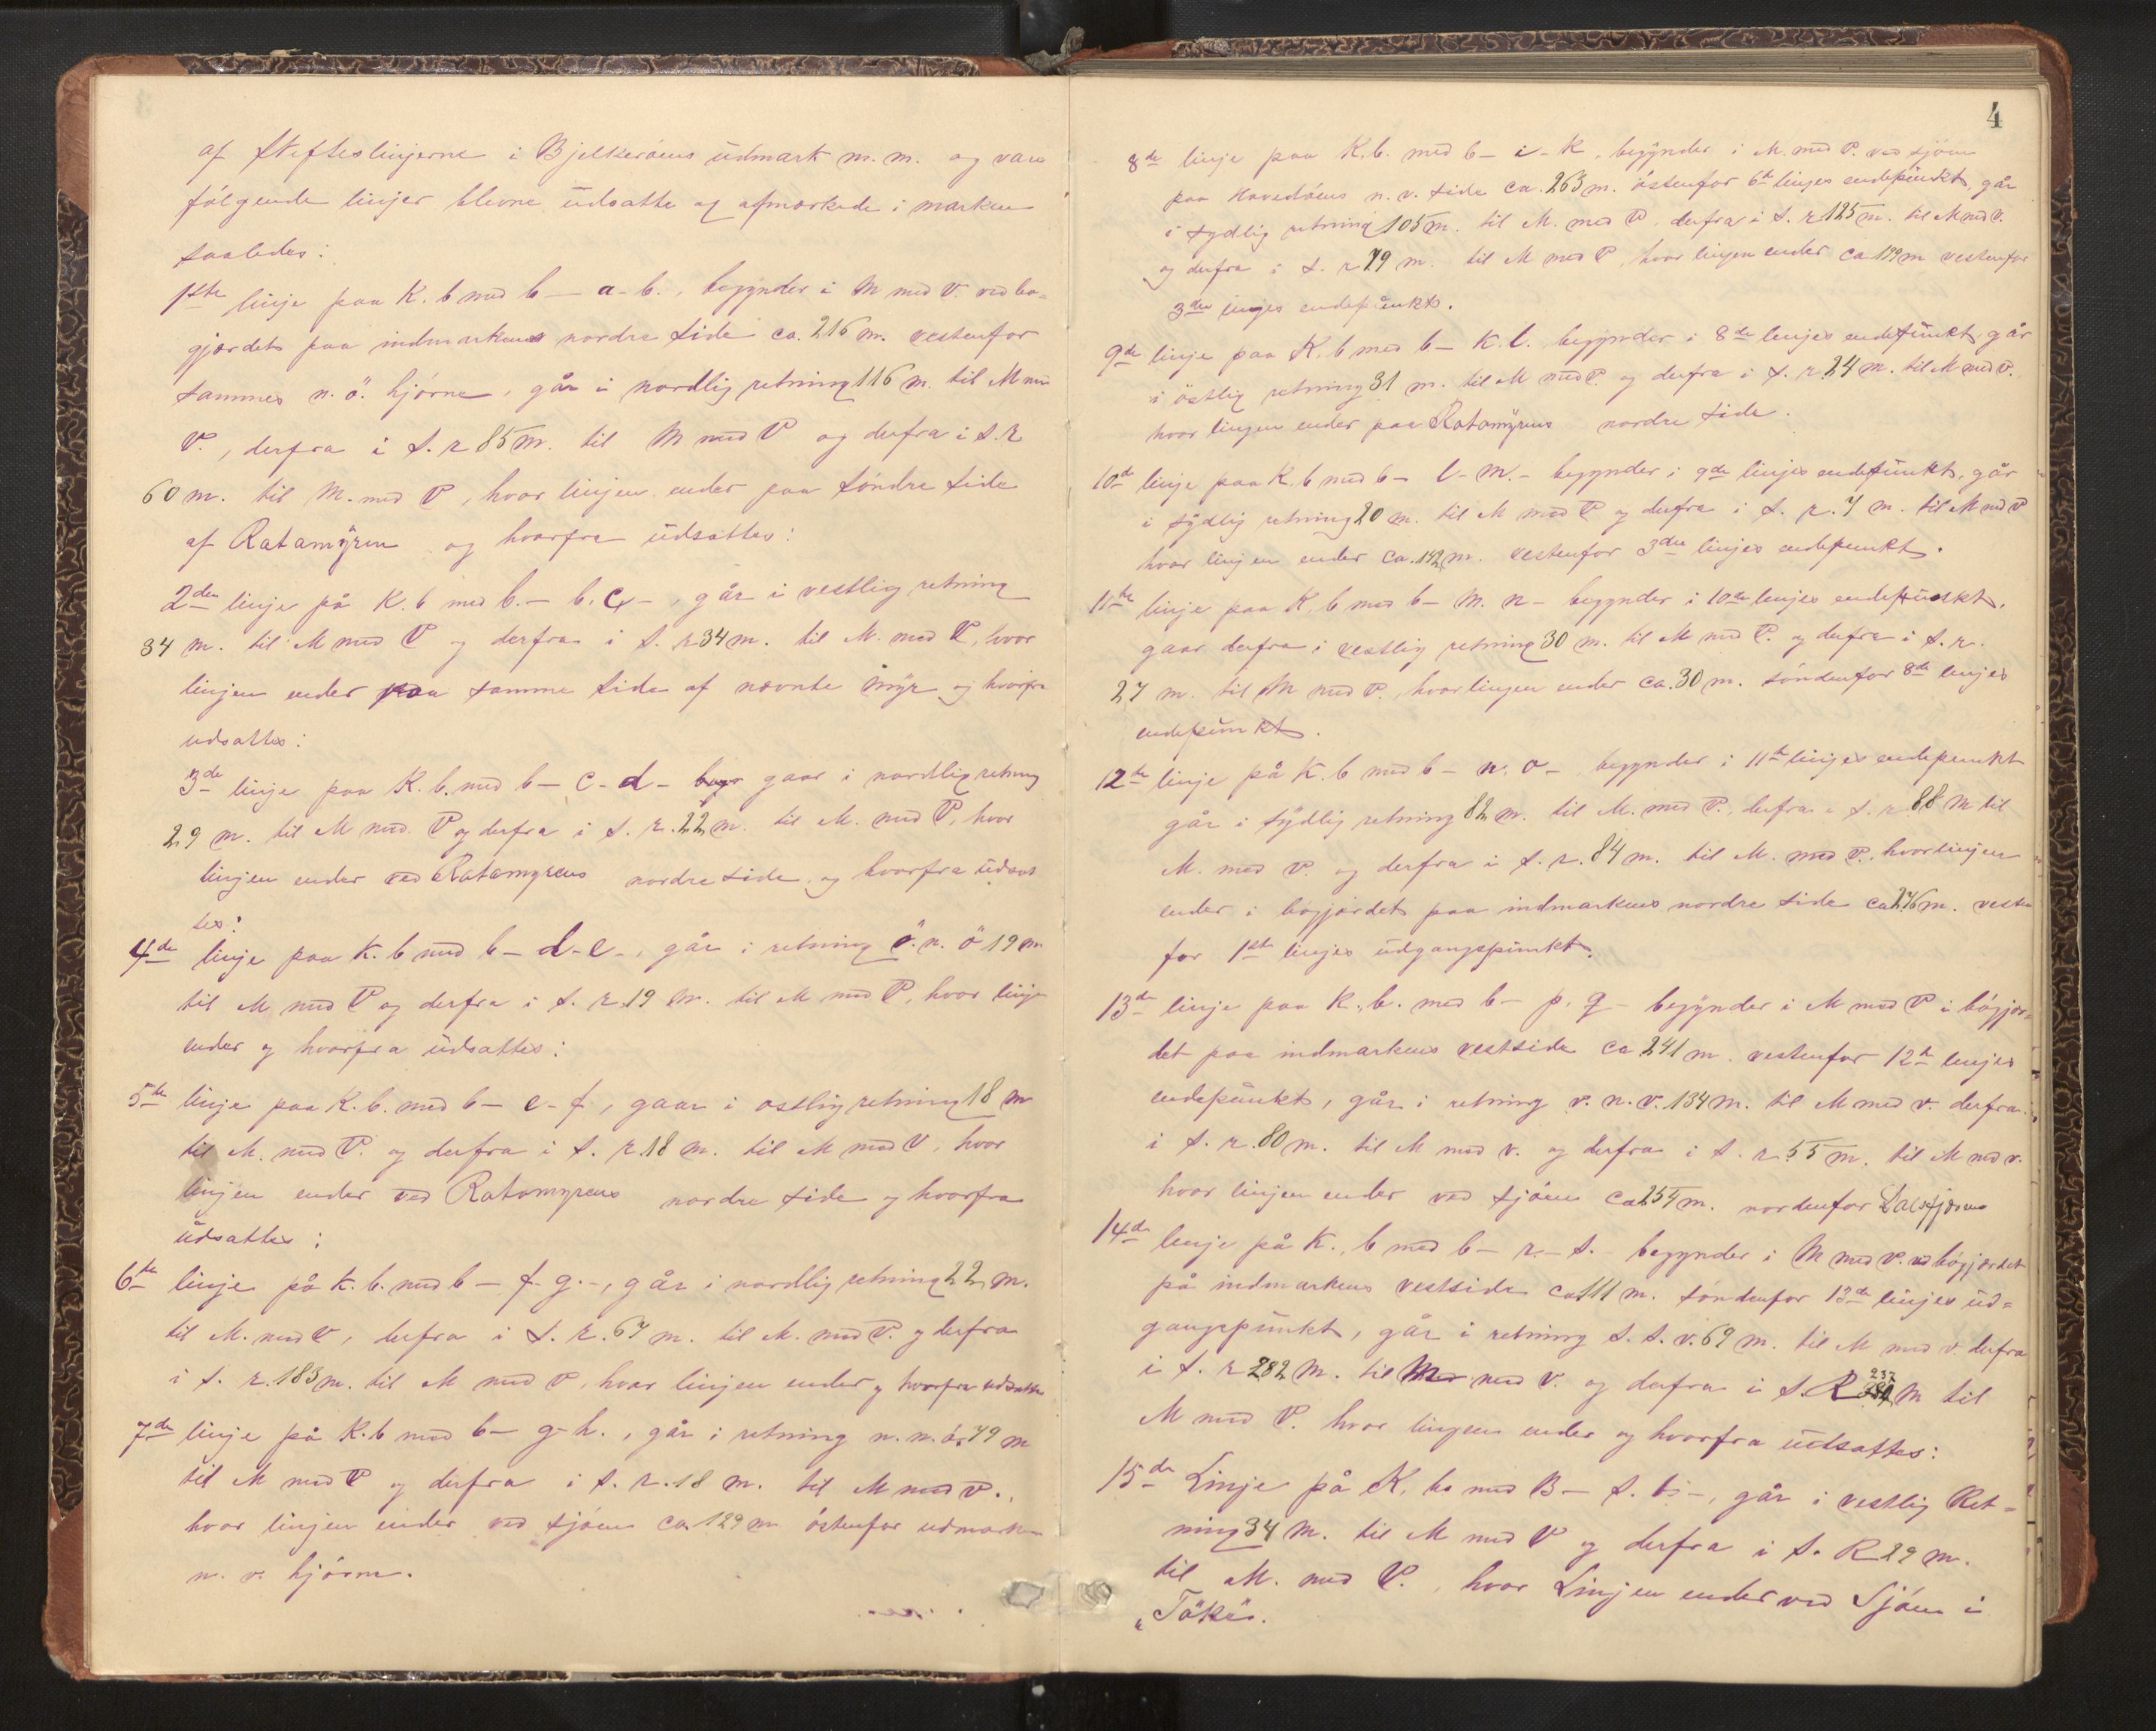 af skifteslinjerne i Bjelkeröens üdmark m.m. og vare
fólgende linjer blevne üdsatte og afmærkede i marken
saaledes:
1ste linje paa K. b med b — a - b., begynder i M med V. ved bö=
gjærdet paa indmarkens nordre side ca. 216 m. vestenfor
sammes n. ö. hjórne, går i nordlig retning 116 m. til M med
V., derfra i s. r 85 m. til M med V og derfra i s. r
60 m. til M. med V, hvor linjen ender paa sóndre side
af Ratamÿren og hvorfra üdsattes:
2den linje på K. b med b. — b. c —, går i vestlig retning
34 m. til M med V og derfra i s. r 34 m. til M. med V, hvor
linjen ender paa samme side af nævnte mÿr og hvorfra
udsattes:
3de linje paa K. b. med b — c - d - gaar i nordlig retning
29 m. til M med V og derfra i s. r. 22 m. til M. med V, hvor
linjen ender ved Ratamyrens nordre side og hvorfra üdsat
tes:
4de linje paa K. b med b — d - e -, går i retning ö. n. ö 19 m
til M med V og derfra i s. r. 19 m. til M med V, hvor linje
ender og hvorfra üdsattes:
5te linje paa K. b. med b — e - f, gaar i ostlig retning 18 m
til M. med V. og derfra i s. r. 18 m. til M med V, hvor
linjen ender ved Ratamyrens nordre side og hvorfra
üdsattes:
6te linje på K. b. med b — f. g. -, går i nordlig retning 22 m.
til M. med V, derfra i s. r. 67 m. til M. med V. og derfra
i s. r. 183 m. til M med V, hvor linjen ender og hvorfra udsattes
7de linje på K. b med b — g - h., går i retning n. n. ö. 79 m
til M med V og derfra i s. r. 18 m. til M med V.,
hvor linjen ender ved sjóen ca. 129 m óstenfor udmarkens
n. v. hjórne.
4
8de linje paa K. b. med b — i - K, begÿnder i M. med V. ved sjóen
paa Havedóens n. v. side ca. 263 m. óstenfor 6te linjes endepünkt, går
i sydlig retning 105 m. til M. med V, derfra i s. r 125 m. til M med V.
og derfra i s. r 79 m. til M med V, hvor linjen ender ca 199 m vestenfor
3die linjes endepünkt.
9de linje paa K. b med b — K. l. begynder i 8de linjes endepünkt, går
i östlig retning 31 m. til M med V. og derfra i s. r. 24 m. til M med V.
hvor linjen ender paa Ratamÿrens nordre side.
10de linje paa K. b med b — l - m. - begynder i 9de linjes endepünkt, går
i sÿdlig retning 20 m. til M med V og derfra i s. r. 7 m. til M med V
hvor linjen ender ca. 142 m. vestenfor 3die linjes endepünkt.
11te linje paa K. b med b — m. n - begynder i 10de linjes endepünkt,
gaar derfra i vestlig retning 30 m. til M med V. og derfra i s. r.
27 m. til M med V., hvor linjen ender ca. 30 m. sóndenfor 8de linjes
endepünkt.
12te linje på K. b med b — n. o -, begynder i 11te linjes endepunkt
går i sÿdlig retning 82 m. til M. med V., derfra i s. r 88 m til
M. med V. og derfra i s. r. 84 m. til M. med V., hvor linjen
ender i bógjærdet paa indmarkens nordre side ca 276 m. vesten
for 1ste linjes üdgangspünkt.
13de linje paa K. b. med b — p. q - begÿnder i M med V i bógjær=
det paa indmarkens vestside ca 241 m. vestenfor 12te linjes
endepünkt, går i retning v. n. v. 134 m. til M med v. derfra
i s. r. 80 m. til M med v. og derfra i s. r 55 m. til M med v.
hvor linjen ender ved sjóen ca 254 m. nordenfor
14de linje på K., b med b — r. - s. - begynder i M med V. ved bógjærdet
på indmarkens vestside ca 111 m. sóndenfor 13de linjes üd=
gangspünkt, går i retning s. s. v. 69 m. til M med v. derfra
i s. r 282 m. til M med V. og derfra i s. R 237 m til
M med V. hvor linjen ender og hvorfra üdsattes:
15de Linje på K. b. med B — s. t —, går i vestlig Ret=
ning 34 m. til M med V og derfra i s. R 29 m.
til M. med V., hvor Linjen ender ved Sjóen i